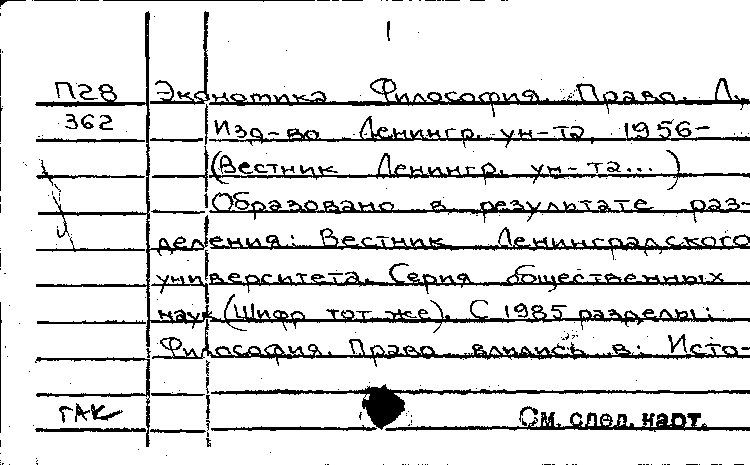 1
П28 Экономика. Философия. Право. Л.,
362 Изд-во Ленингр. ун-та, 1956-
(Вестник Ленингр. ун-та...)
Образовано в результате раз-
деления: Вестник Ленинградского
университета. Серия общественных
наук (Шифр тот же). С 1985 разделы:
Философия. Право влились в: Исто-
ГАК См. след. карт.